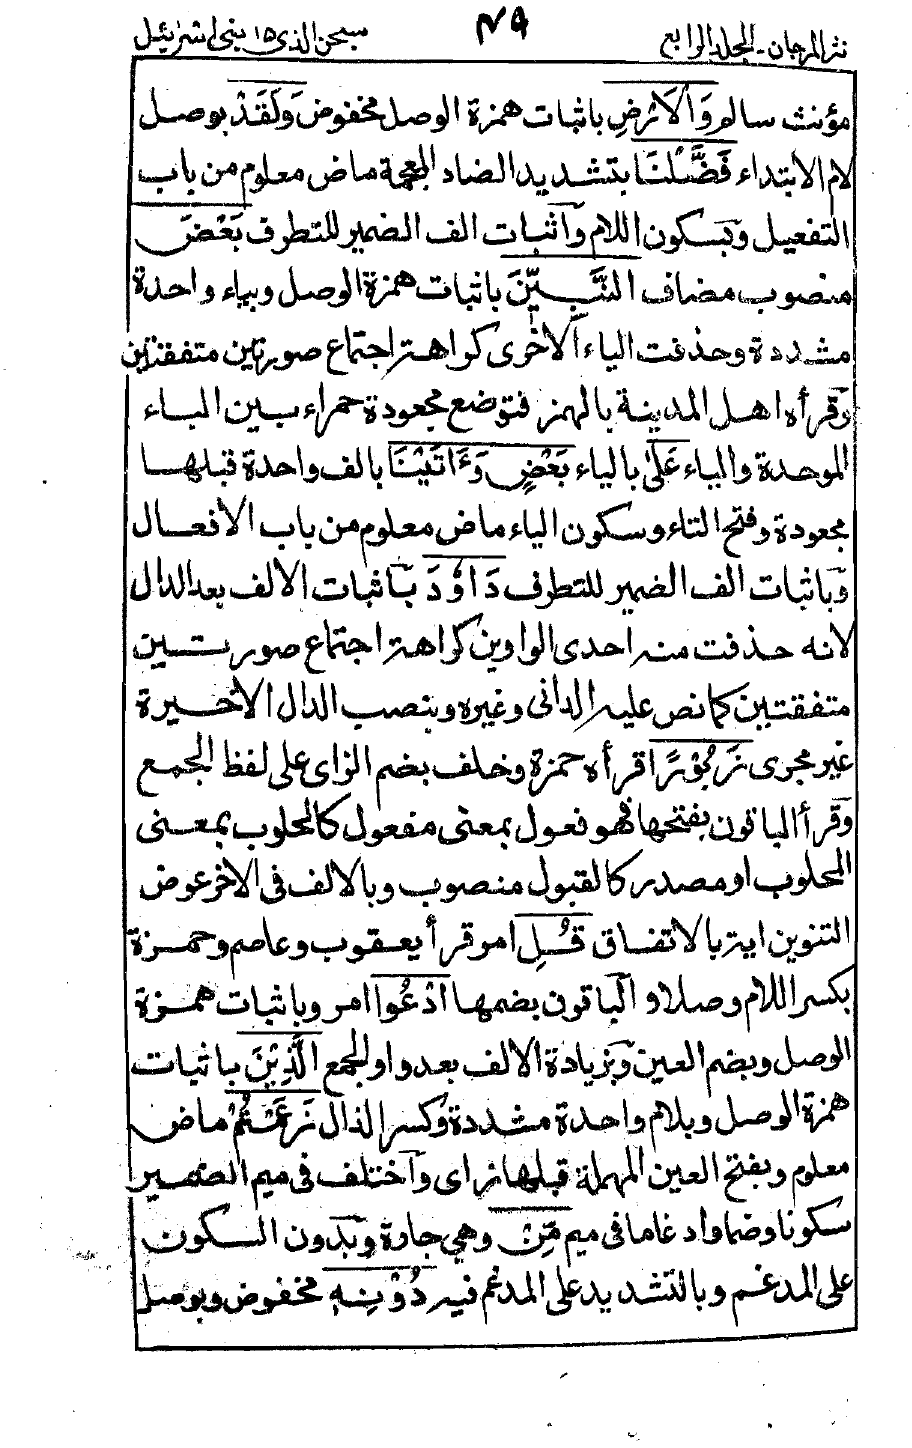 نثر المرجان۔ الجلد الرابع
٤٩
سبحن الذى ١٥ بنى اسرٰئيل
مؤنث سالم وَالْاَرْضِ باثبات همزة الوصل مخفوض وَلَقَدْ بوصل
لام الابتداء فَضَّلْنَا بتشديد الضاد المعجمة ماض معلوم من باب
التفعيل وبسكون اللام واثبات الف الضمير للتطرف بَعْضَ
منصوب مضاف النَّبِيّٖنَ باثبات همزة الوصل وبياء واحدة
مشددة وحذفت الياء الاخرى كراهة اجتماع صورتين متفقتين
وقرأه اهل المدينة بالهمز فتوضع مجعودة حمراء بين الياء
الموحدة والياء عَلٰى بالياء بَعْضٍ وَءَاتَيْنَا بالف واحدة قبلها
مجعودة وفتح التاء وسكون الياء ماض معلوم من باب الافعال
وباثبات الف الضمير للتطرف دَاوٗدَ باثبات الالف بعد الدال
لانه حذفت منه احدى الواوين كراهة اجتماع صورتين
متفقتين كما نص عليه الدانى وغيره وبنصب الدال الاخيرة
غير مجرى زَبُوْرًا قرأه حمزة وخلف بضم الزاى على لفظ الجمع
وقرأ الباقون بفتحها فهو فعول بمعنى مفعول كالمحلوب بمعنى
المحلوب او مصدر كالقبول منصوب وبالالف فى الاخر عوض
التنوين اية بالاتفاق قُلِ امر قرأ يعقوب وعاصم وحمزة
بكسر اللام وصلا و الباقون بضمها ادْعُوا امر وباثبات همزة
الوصل وبضم العين وبزيادة الالف بعد واو الجمع الَّذِيْنَ باثبات
همزة الوصل وبلام واحدة مشددة وكسر الذال زَعَمْتُمْ ماض
معلوم وبفتح العين المهملة قبلها زاى واختلف فى ميم الضمير
سكونا وضما وادغاما فى ميم مِّنْ وهي جارة وبدون السكون
على المدغم وبالتشديد على المدغم فيه دُوْنِهٖ مخفوض وبوصل